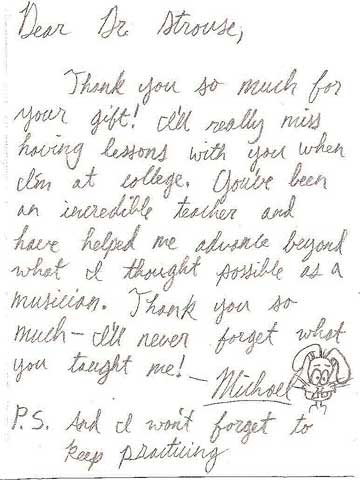 Dear Dr. Strouse,
Thank you so much for
your gift! I'll really miss
having lessons with you when
I'm at college. You've been
an incredible teacher and
have helped me advance beyond
what I thought possible as a
musician. Thank you so
much—I'll never forget what
you taught me! —Michael
P.S. And I won't forget to
keep practicing